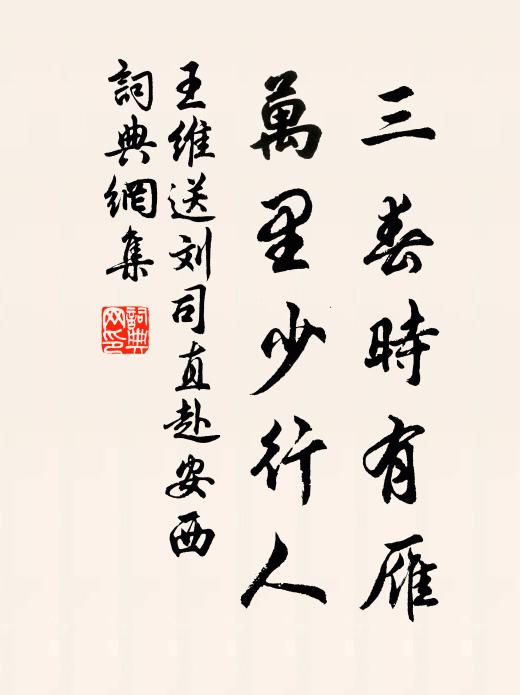 三春時有雁
萬里少行人
王維送刘司直赴安西
詞典網集
詞典网印